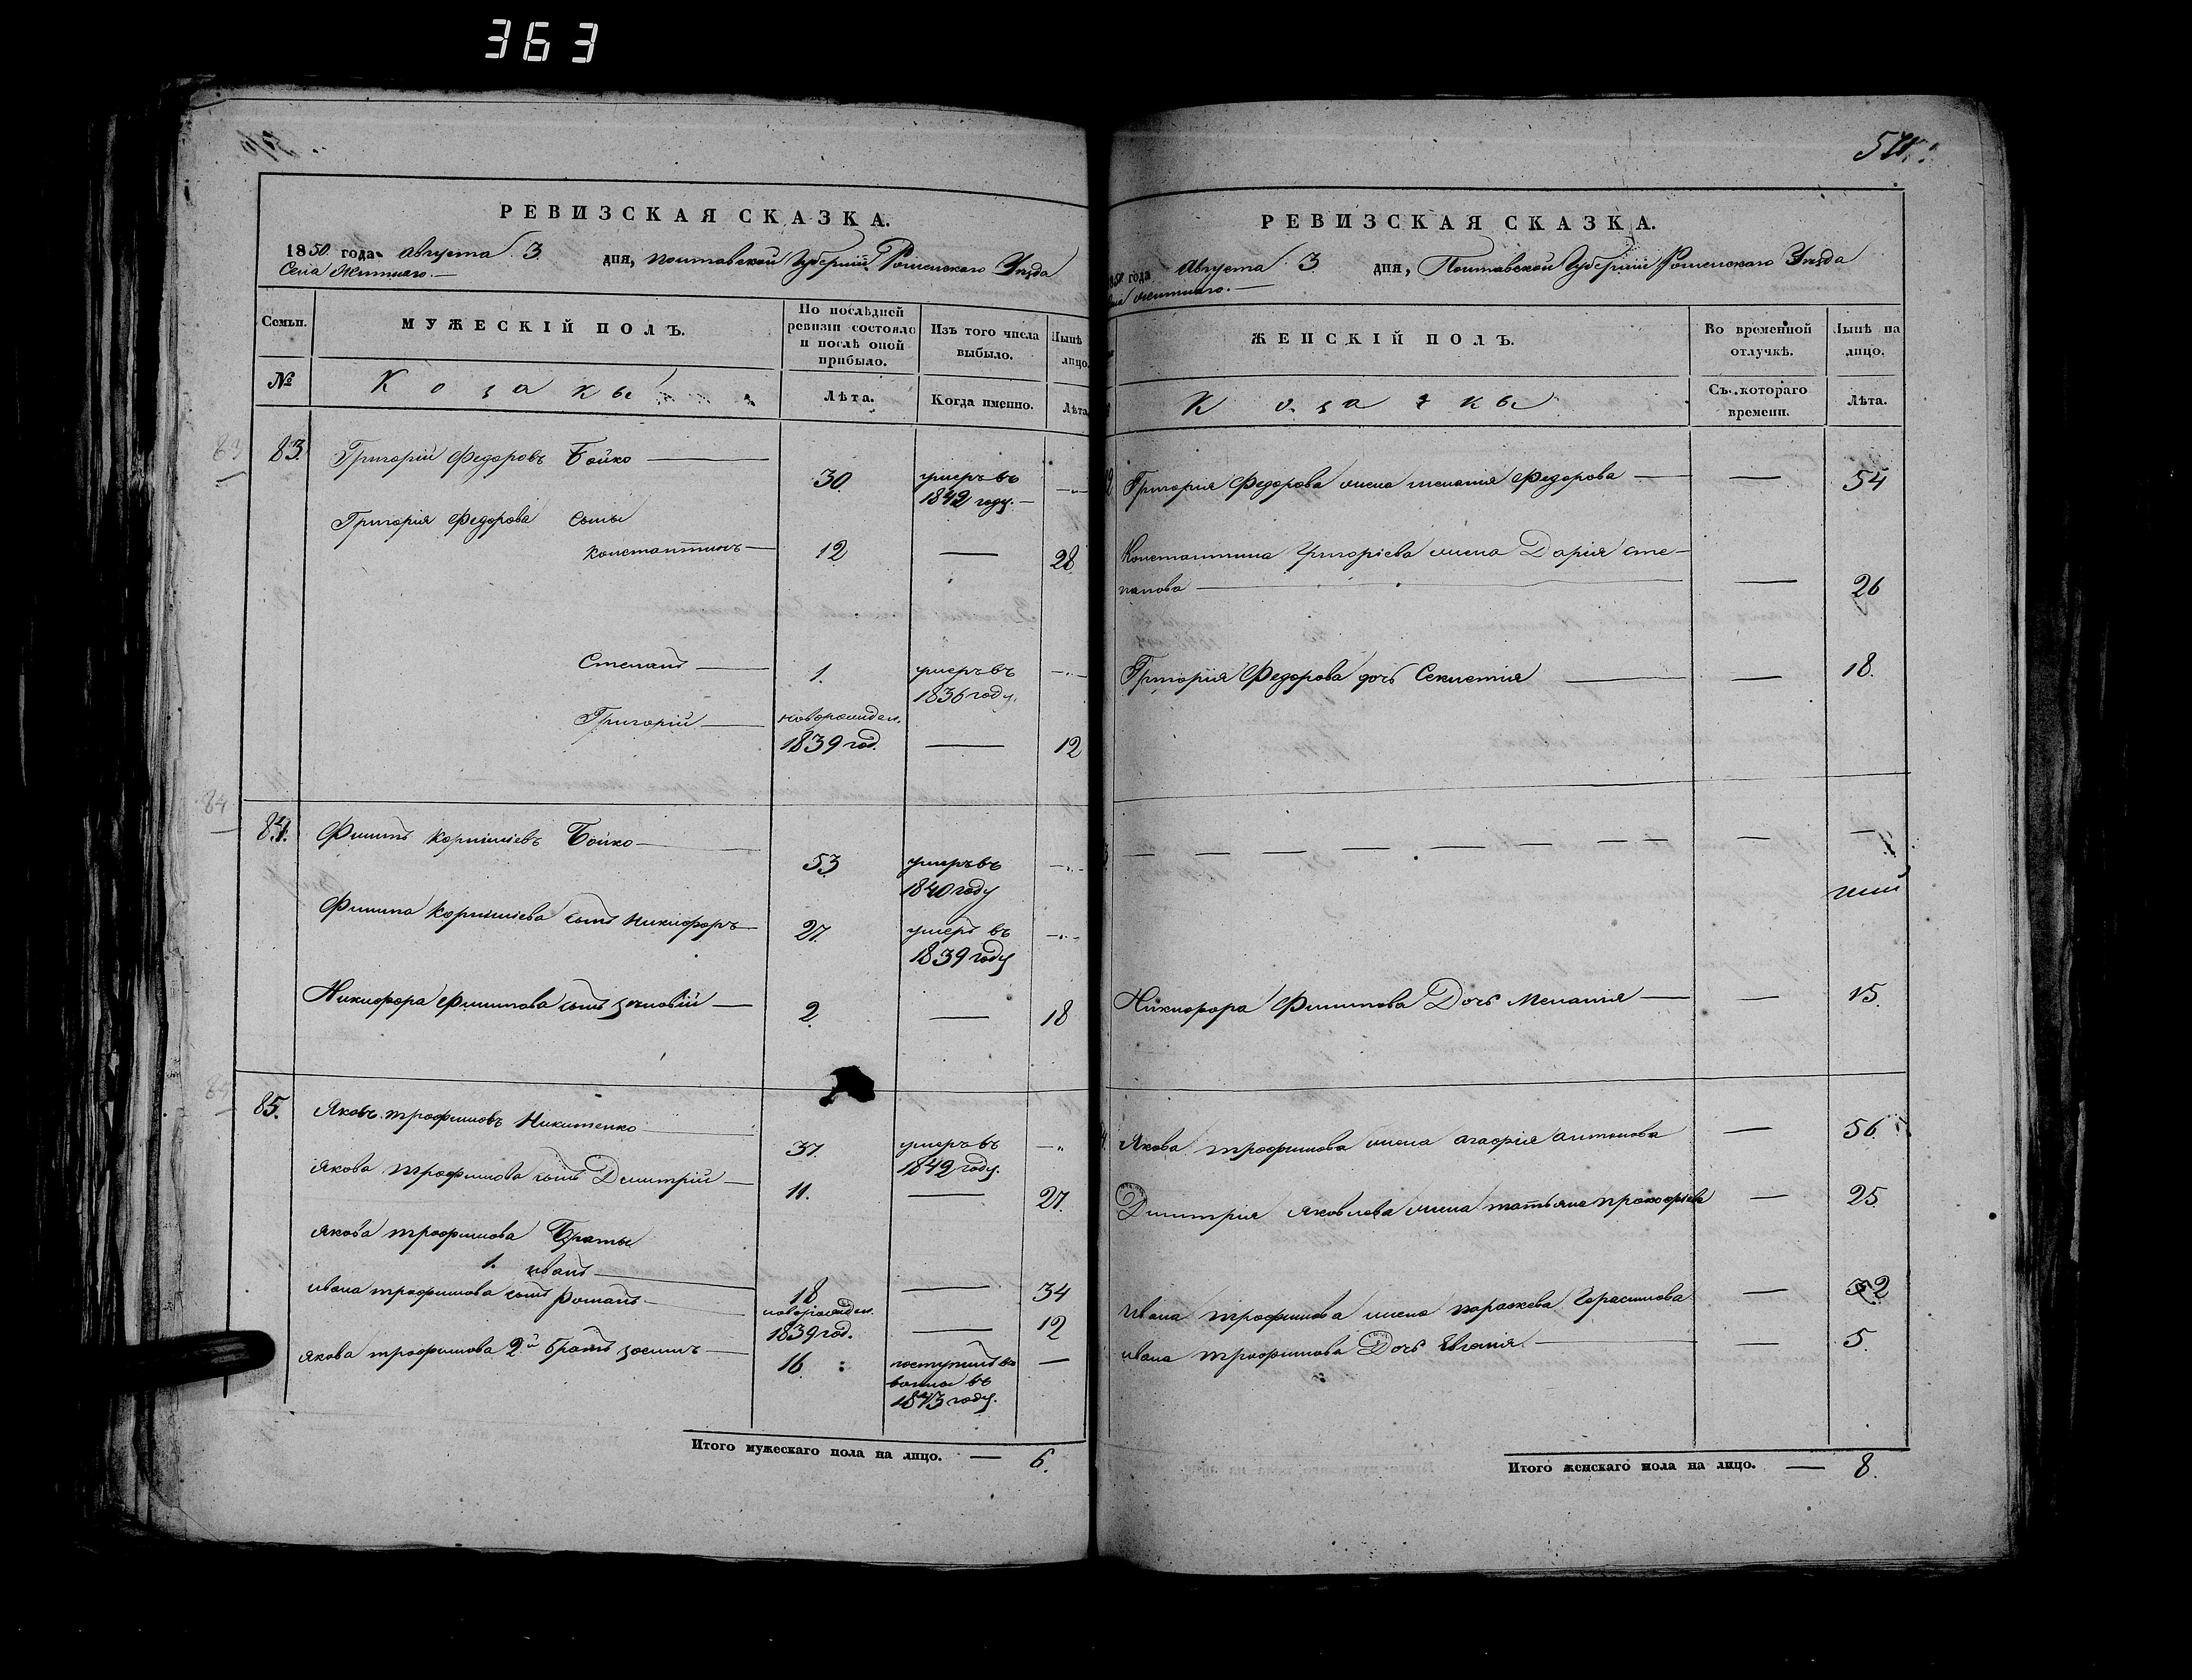 363
РЕВИЗСКАЯ СКАЗКА.
1850 года Августа 3 дня, Полтавской Губерніи Роменскаго Уѣзда
Села Житнаго.
Семьи.
МУЖЕСКІЙ ПОЛЪ.
По послѣдней
ревизіи состояло
и послѣ оной
прибыло.
Изъ того числа
выбыло.
Нынѣ
лицо.
№
Козаки
Лѣта.
Когда именно.
Лѣта
83
83. Григорій Федоровъ Бойко — 30. умеръ въ
1842 году.
Григорія Федорова сыны
Константинъ — 12 — 28
Степанъ — 1. умеръ въ
1836 году.
Григорій — новорожден.
1839 год. — 12
84
84. Филипъ Корніліевъ Бойко — 53 умеръ въ
1840 году
Филипа Корниліева сынъ Никифоръ — 27. умеръ въ
1839 году
Никифора Филипова сынъ Зѣновій — 2. — 18
85. Яковъ Трофимовъ Никитенко — 37. умеръ въ
1842 году.
Якова Трофимова сынъ Дмитрій — 11. — 27.
Якова Трофимова Браты
1. Иванъ — 18 — 34
Ивана Трофимова сынъ Романъ — новорожден.
1839 год. — 12
Якова Трофимова 2й братъ Зосимъ — 16 поступилъ во
1843 году. —
Итого мужескаго пола на лицо. — 6.
РЕВИЗСКАЯ СКАЗКА.
1850 года Августа 3 дня, Полтавской Губерніи Роменскаго Уѣзда
Села Житнаго.
ЖЕНСКІЙ ПОЛЪ.
Во временной
отлучкѣ.
Нынѣ на
лицо.
Козачки
Съ котораго
времени.
Лѣта.
Григорія Федорова жена Меланія Федорова — — 54
Константина Григоріева жена Дарія Сте-
панова — — 26
Григорія Федорова дочь Секлетія — — 18.
— — — — — — — —
Никифора Филипова Дочь Меланія — — 15.
Якова Трофимова жена Агафія Антонова — 56.
Дмитрія Яковлева жена Татьяна Прокофіева — 25
Ивана Трофимова жена Параскева Герасимова — 32
Ивана Трофимова Дочь Евгенія — — 5.
Итого женскаго пола на лицо. — 8.